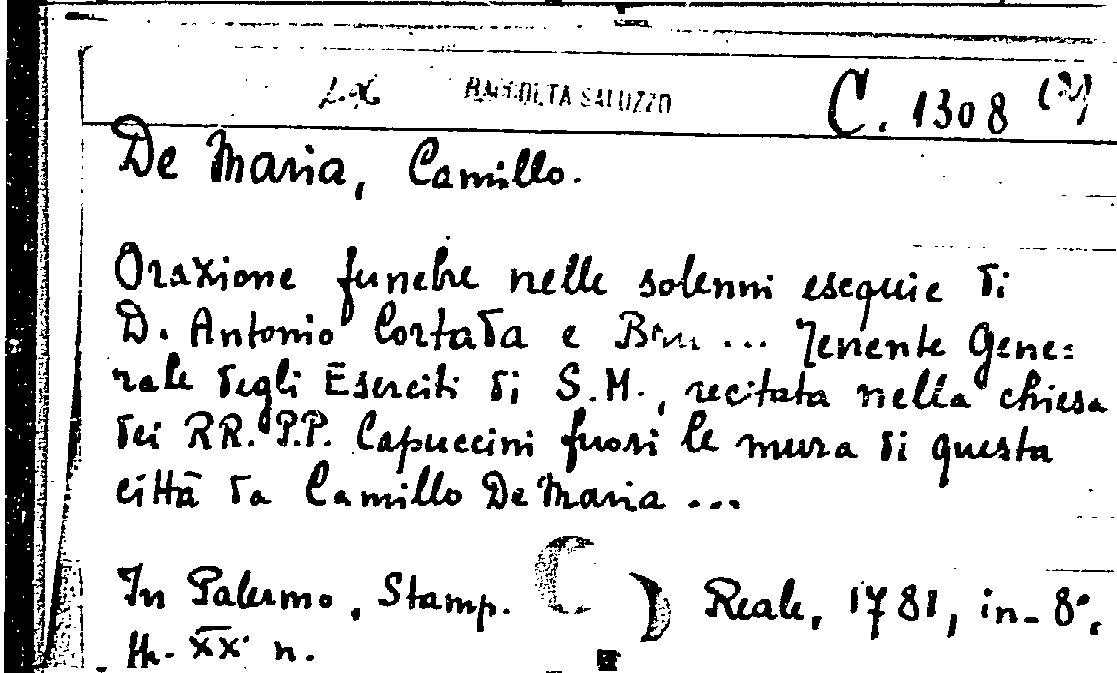 RACCOLTA SALUZZO C. 1308 (2)
De Maria, Camillo.
Orazione funebre nelle solenni esequie di
D. Antonio Cortada e Bru ... Tenente Gene=
rale degli Eserciti di S.M., recitata nella chiesa
dei RR. P.P. Capuccini fuori le mura di questa
città da Camillo De Maria ...
In Palermo, Stamp. Reale, 1781, in-8°.
XX n.